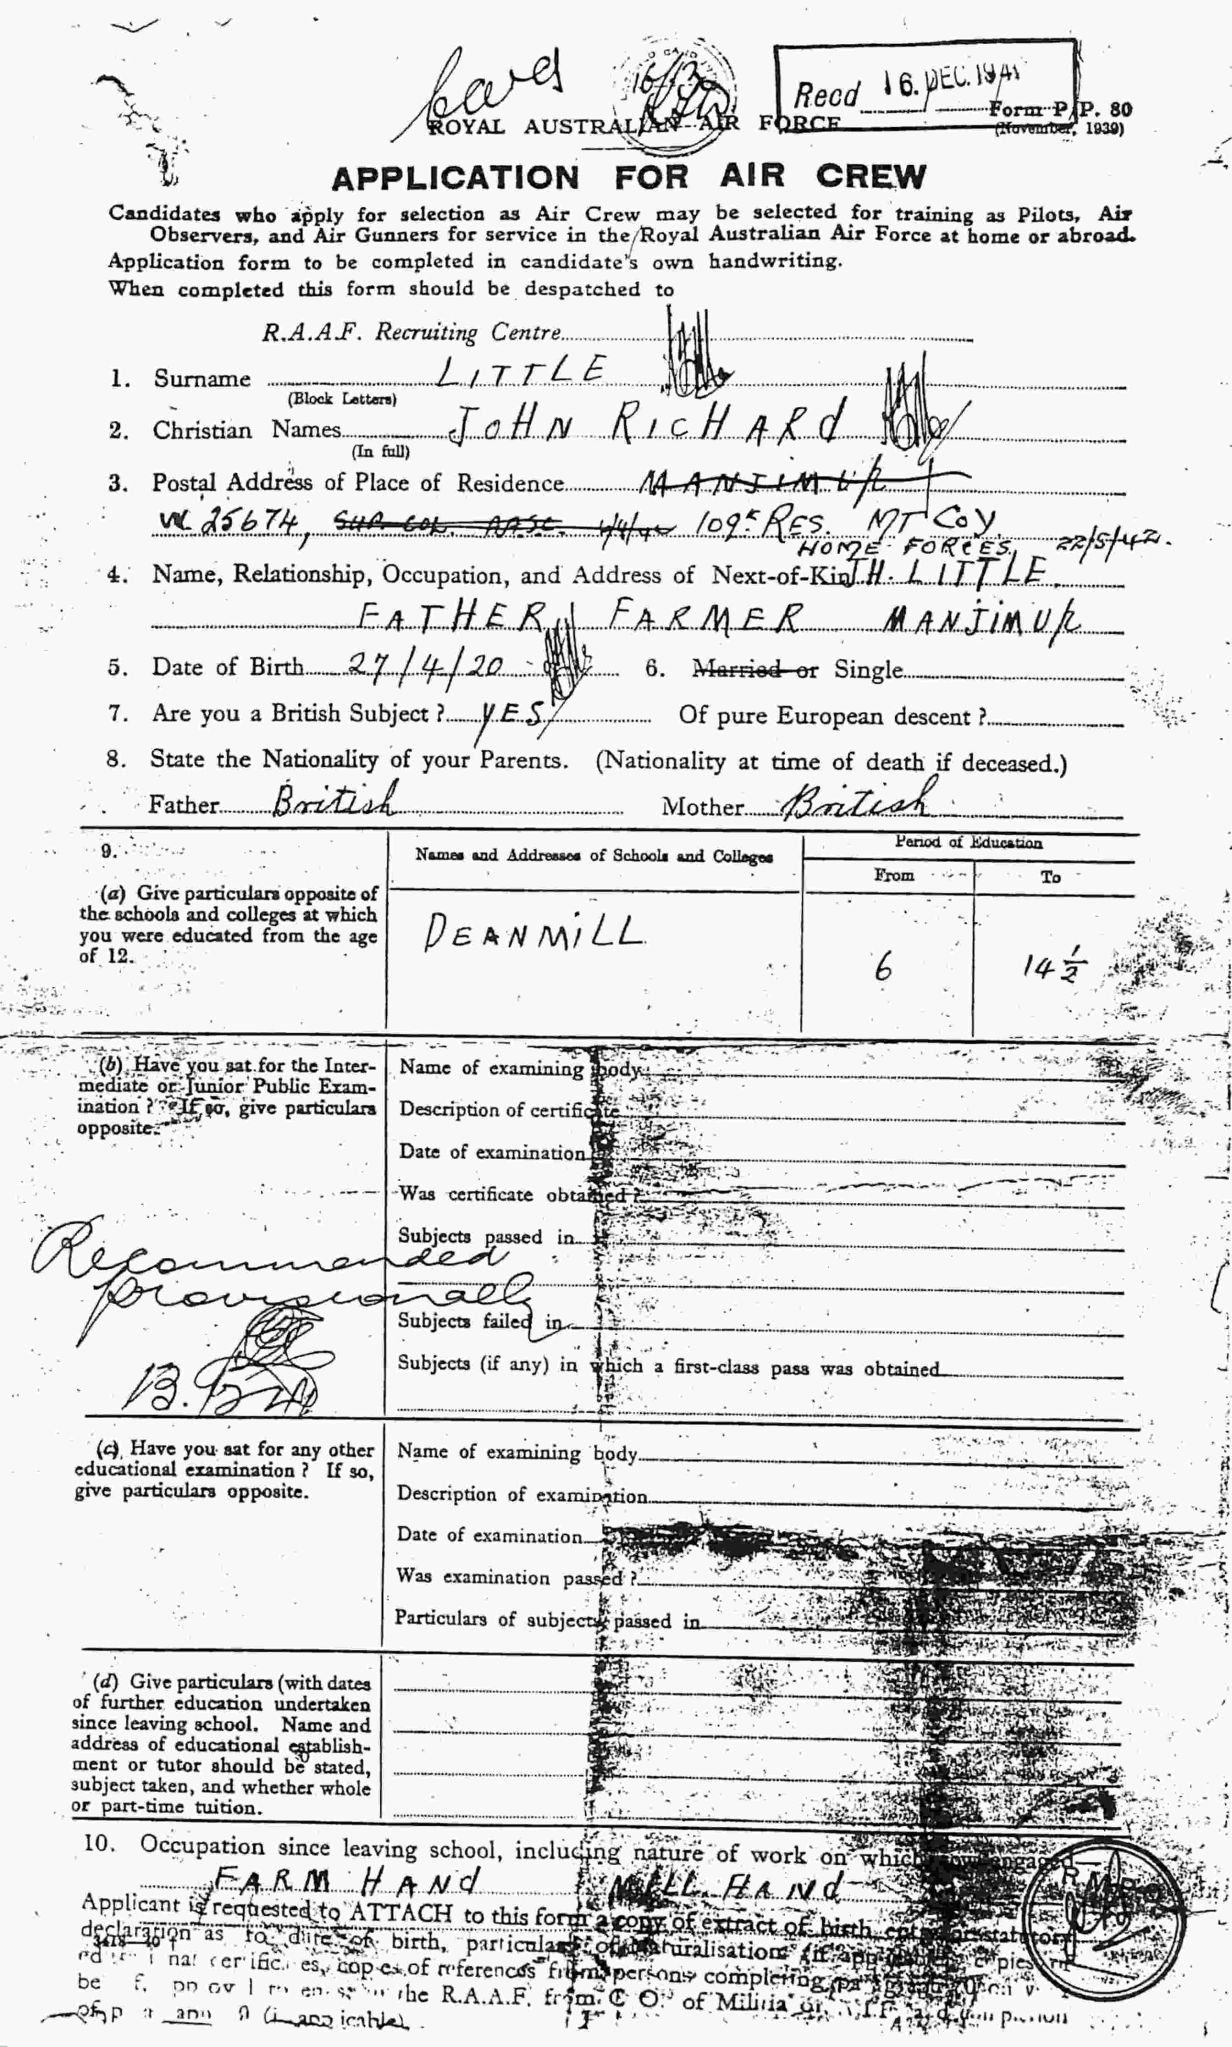 Cards
Recd 16. DEC. 1941
Form P/P. 80
(November, 1939)
ROYAL AUSTRALIAN AIR FORCE
APPLICATION FOR AIR CREW
Candidates who apply for selection as Air Crew may be selected for training as Pilots, Air
Observers, and Air Gunners for service in the Royal Australian Air Force at home or abroad.
Application form to be completed in candidate's own handwriting.
When completed this form should be despatched to
R.A.A.F. Recruiting Centre
1. Surname LITTLE
(Block Letters)
2. Christian Names JOHN RICHARd
(In full)
3. Postal Address of Place of Residence MANJIMUP
25674, SUP COL. AASC. 109 RES. MT COY
HOME FORCES 22/5/42.
4. Name, Relationship, Occupation, and Address of Next-of-Kin J.H. LITTLE
FATHER FARMER MANJIMUP
5. Date of Birth 27/4/20 6. Married or Single
7. Are you a British Subject? YES Of pure European descent?
8. State the Nationality of your Parents. (Nationality at time of death if deceased.)
Father British Mother British
9.
(a) Give particulars opposite of
the schools and colleges at which
you were educated from the age
of 12.
Names and Addresses of Schools and Colleges
Period of Education
From To
DEANMILL 6 14 1/2
(b) Have you sat for the Inter-
mediate or Junior Public Exam-
ination? If so, give particulars
opposite.
Name of examining body
Description of certificate
Date of examination
Was certificate obtained?
Subjects passed in
Subjects failed in
Subjects (if any) in which a first-class pass was obtained
Recommended
provisionally
(c) Have you sat for any other
educational examination? If so,
give particulars opposite.
Name of examining body
Description of examination
Date of examination
Was examination passed?
Particulars of subjects passed in
(d) Give particulars (with dates
of further education undertaken
since leaving school. Name and
address of educational establish-
ment or tutor should be stated,
subject taken, and whether whole
or part-time tuition.
10. Occupation since leaving school, including nature of work on which now engaged
FARM HANd MILL HANd
Applicant is requested to ATTACH to this form a copy of extract of birth entry or statutory
declaration as to date of birth, particulars of Naturalisation (if applicable), copies
copies of references from persons completing
the R.A.A.F. from C.O. of Militia